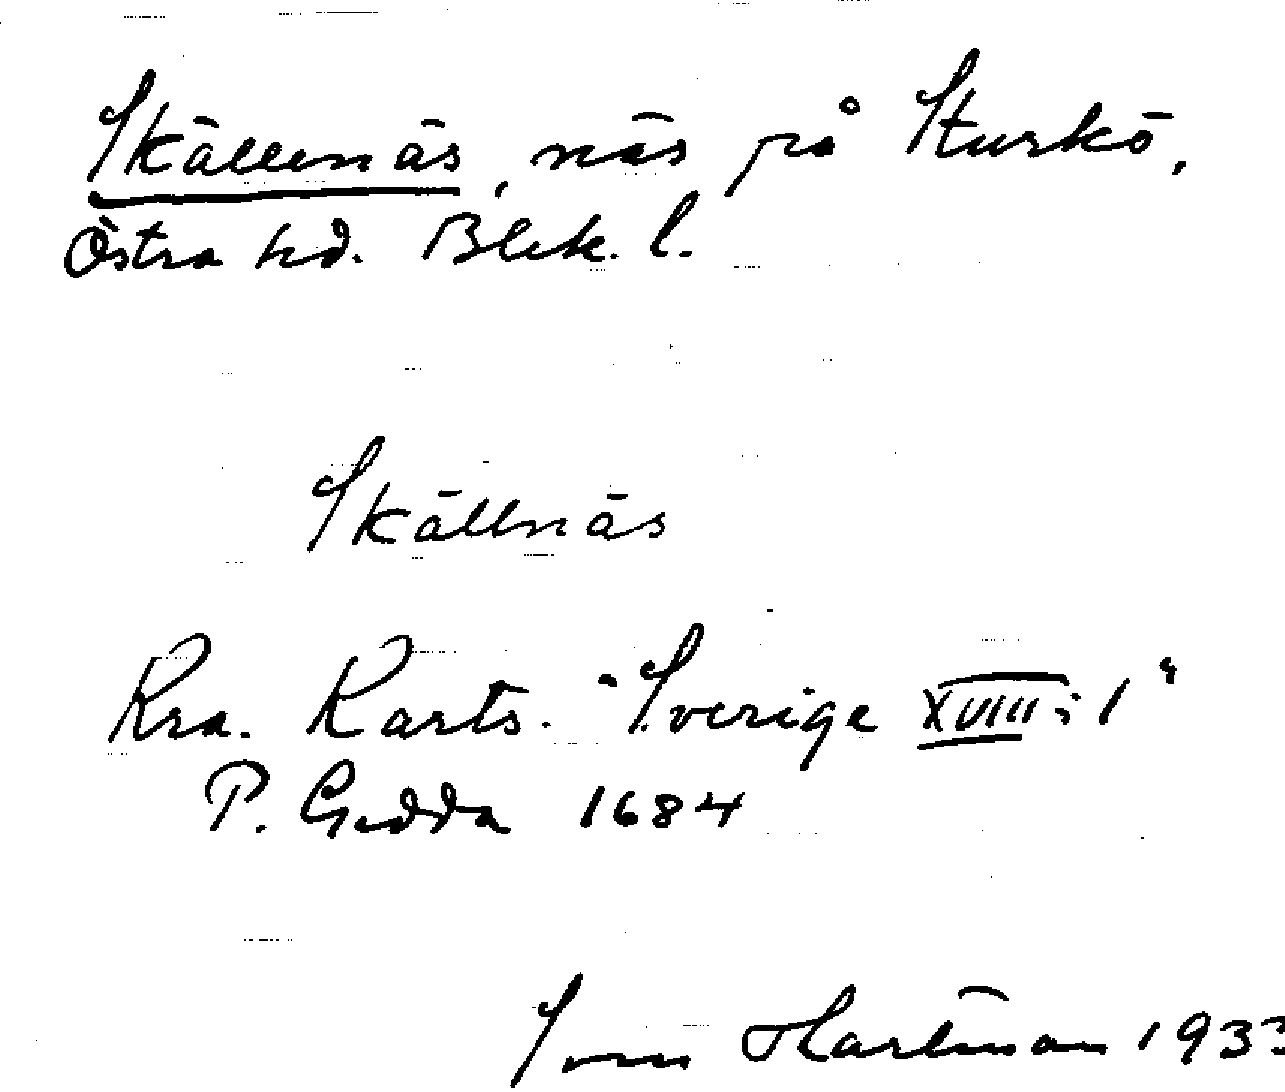 Skällenäs, näs på Sturkö,
Östra hd. Blek. l.
Skällnäs
Kra. Karts. "Sverige XVIII:1"
P. Gedda 1684
Sven Hartman 1933